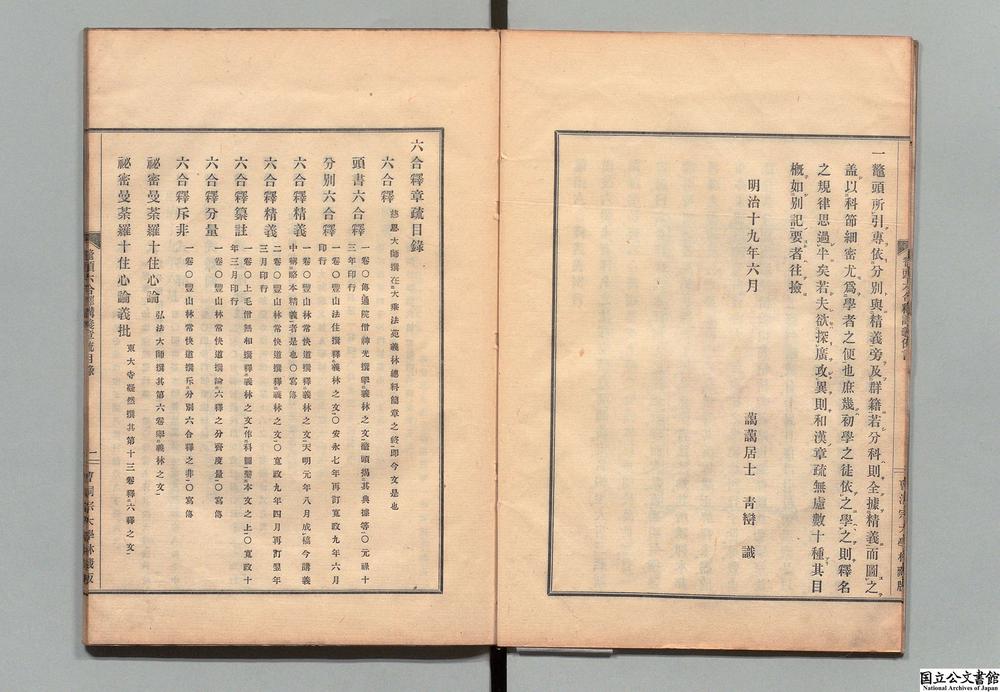 一鼇頭所引專依分別與精義旁及群籍若分科則全據精義而圖之
盖以科節細密尤爲學者之便也庶幾初學之徒依之學之則釋名
之規律思過半矣若夫欲探廣攻異則和漢章疏無慮數十種其目
概如別記要者往撿
明治十九年六月
藹藹居士 靑巒 識
六合釋章疏目錄
六合釋 慈恩大師撰在大乘法苑義林總料簡章之終卽今文是也
頭書六合釋 一卷〇傳通院僧神光撰擧義林之文鼇頭揭其典據等〇元祿十
三年印行
分別六合釋 一卷〇豐山法住撰釋義林之文〇安永七年再訂寬政九年六月
印行
六合釋精義 一卷〇豐山林常快道撰釋義林之文天明元年八月成稿今講義
中稱略本精義者是也〇寫傳
六合釋精義 二卷〇豐山林常快道撰釋義林之文〇寬政九年四月再訂翌年
三月印行
六合釋纂註 一卷〇上毛僧無和撰釋義林之文作科圖鼇本文之上〇寬政十
年三月印行
六合釋分量 一卷〇豐山林常快道撰論六釋之分齊度量〇寫傳
六合釋斥非 一卷〇豐山林常快道撰斥分別六合釋之非〇寫傳
祕密曼荼羅十住心論 弘法大師撰其第六卷擧義林之文
祕密曼荼羅十住心論義批 東大寺凝然撰其第十三卷釋六釋之文
一
曹洞宗大學林藏版
國立公文書館
National Archives of Japan